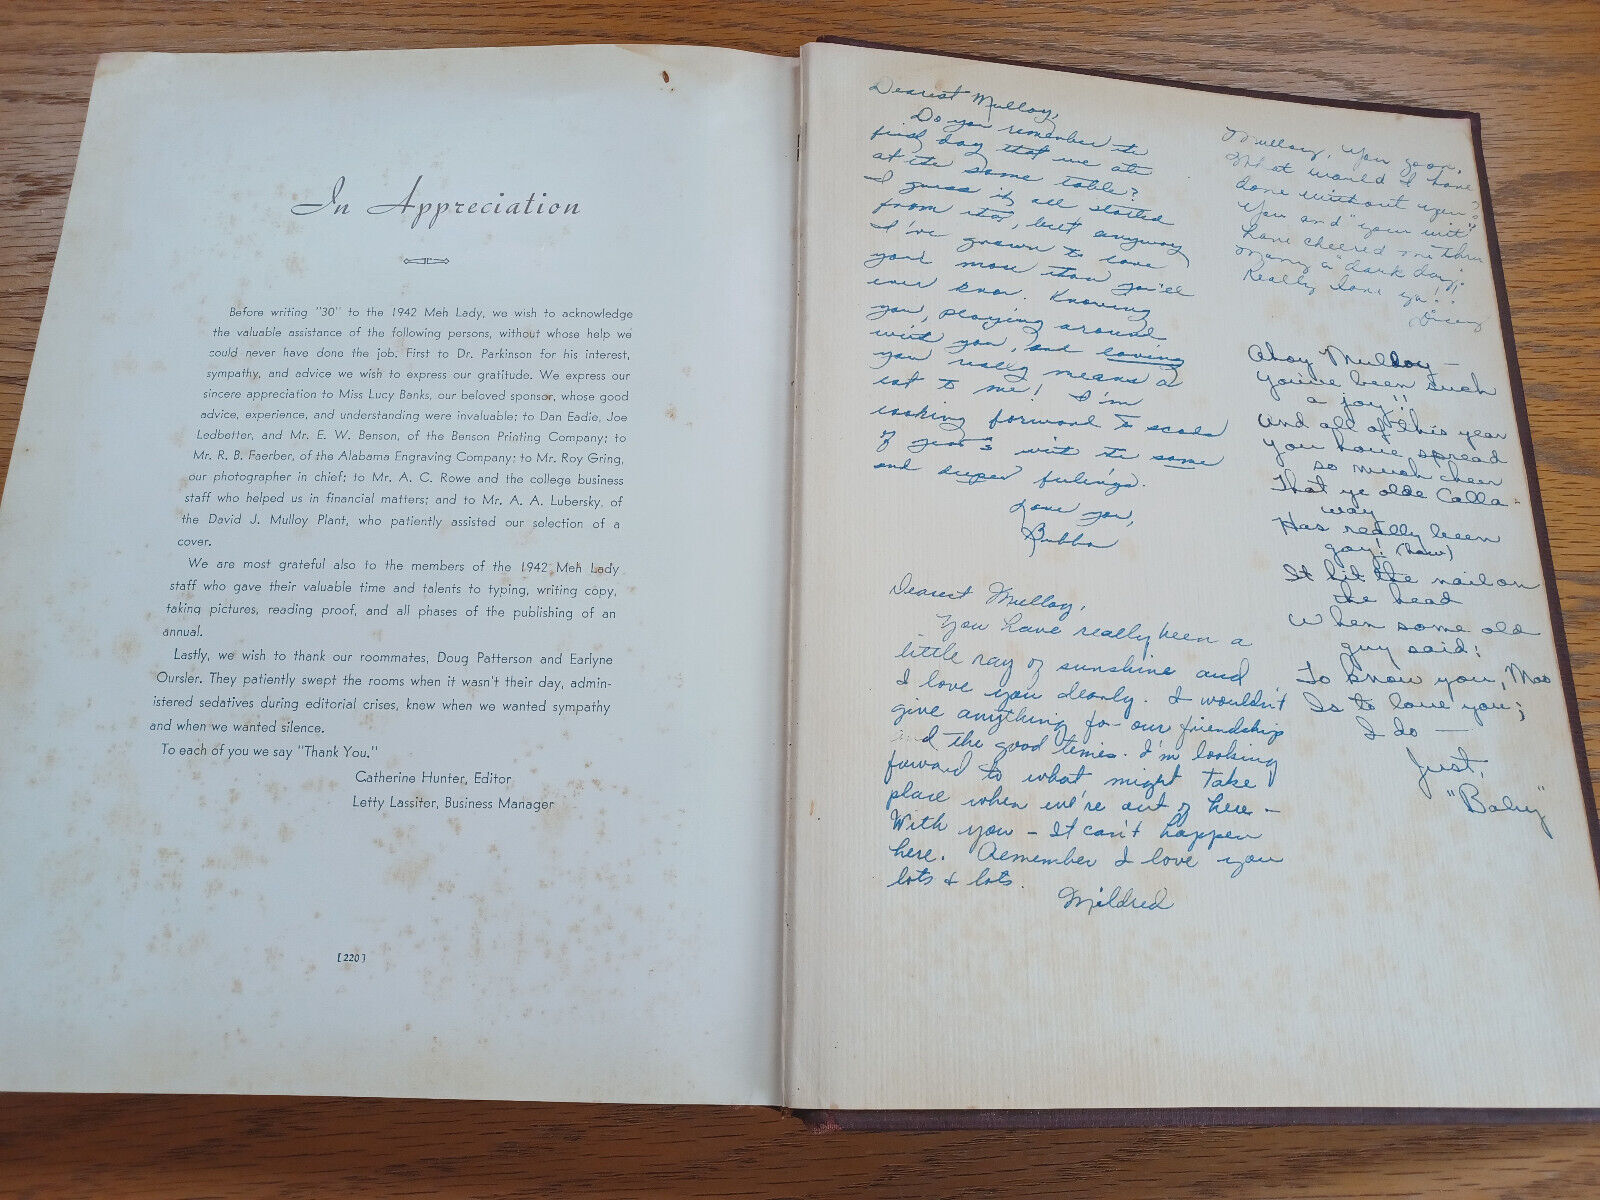 In Appreciation
Before writing "30" to the 1942 Meh Lady, we wish to acknowledge
the valuable assistance of the following persons, without whose help we
could never have done the job. First to Dr. Parkinson for his interest,
sympathy, and advice we wish to express our gratitude. We express our
sincere appreciation to Miss Lucy Banks, our beloved sponsor, whose good
advice, experience, and understanding were invaluable; to Dan Eadie, Joe
Ledbetter, and Mr. E. W. Benson, of the Benson Printing Company; to
Mr. R. B. Faerber, of the Alabama Engraving Company; to Mr. Roy Gring,
our photographer in chief; to Mr. A. C. Rowe and the college business
staff who helped us in financial matters; and to Mr. A. A. Lubersky, of
the David J. Mulloy Plant, who patiently assisted our selection of a
cover.
We are most grateful also to the members of the 1942 Meh Lady
staff who gave their valuable time and talents to typing, writing copy,
taking pictures, reading proof, and all phases of the publishing of an
annual.
Lastly, we wish to thank our roommates, Doug Patterson and Earlyne
Oursler. They patiently swept the rooms when it wasn't their day, admin-
istered sedatives during editorial crises, knew when we wanted sympathy
and when we wanted silence.
To each of you we say "Thank You."
Catherine Hunter, Editor
Letty Lassiter, Business Manager
[ 220 ]
Dearest Mulloy,
Do you remember the
first day that we ate
at the same table?
I guess it all started
from that, but anyway
I've grown to love
you more than you'll
ever know. Knowing
you, playing around
with you, and loving
you really means a
lot to me! I'm
looking forward to scads
of years with the same
and deeper feelings.
Love you,
Bubba
Dearest Mulloy,
You have really been a
little ray of sunshine and
I love you dearly. I wouldn't
give anything for our friendship
and the good times. I'm looking
forward to what might take
place when we're out of here –
With you – It can't happen
here. Remember I love you
lots & lots.
Mildred
Mulloy, you goon,
What would I have
done without you?
You and "your wit"
have cheered me thru
many a "dark day."
Really love ya!!
Ahoy Mulloy –
You've been such
a joy!!
And all of this year
you have spread
so much cheer
That ye olde Calla-
way
Has really been
gay! (haw)
It hit the nail on
the head
When some old
guy said:
To know you, Moo
Is to love you;
I do –
Just,
"Baby"